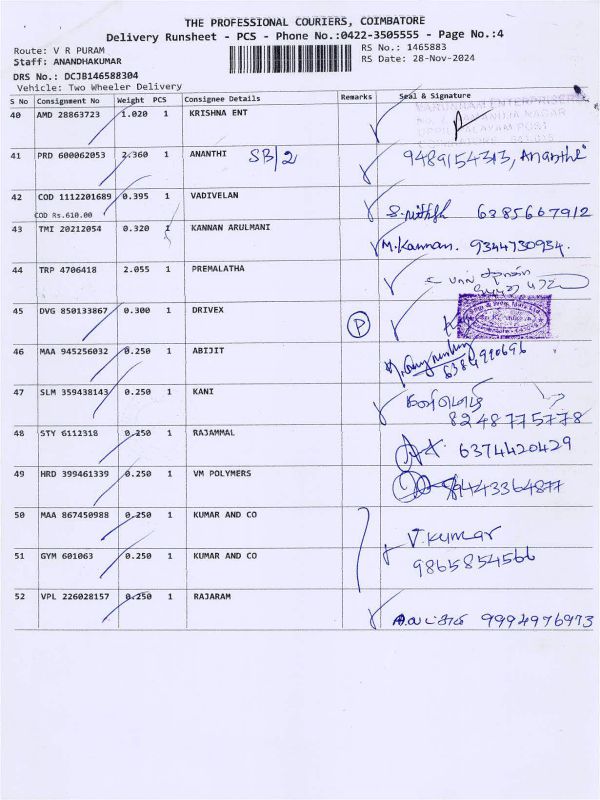 THE PROFESSIONAL COURIERS, COIMBATORE
Delivery Runsheet - PCS - Phone No.:0422-3505555 - Page No.:4
Route: V R PURAM RS No.: 1465883
Staff: ANANDHAKUMAR RS Date: 28-Nov-2024
DRS No.: DCJB146588304
Vehicle: Two Wheeler Delivery
S No Consignment No Weight PCS Consignee Details Remarks Seal & Signature
40 AMD 28863723 1.020 1 KRISHNA ENT
41 PRD 600062053 2.360 1 ANANTHI SB/2 9489154313, Ananthi
42 COD 1112201689 0.395 1 VADIVELAN 6385667912
COD Rs.610.00
43 TMI 20212054 0.320 1 KANNAN ARULMANI M.Kannan. 9344730934.
44 TRP 4706418 2.055 1 PREMALATHA
45 DVG 850133867 0.300 1 DRIVEX P
46 MAA 945256032 0.250 1 ABIJIT 6384910696
47 SLM 359438143 0.250 1 KANI
8248775778
48 STY 6112318 0.250 1 RAJAMMAL 6374420429
49 HRD 399461339 0.250 1 VM POLYMERS 9443364877
50 MAA 867450988 0.250 1 KUMAR AND CO V.Kumar
51 GYM 601063 0.250 1 KUMAR AND CO 9865854566
52 VPL 226028157 0.250 1 RAJARAM 9994976973